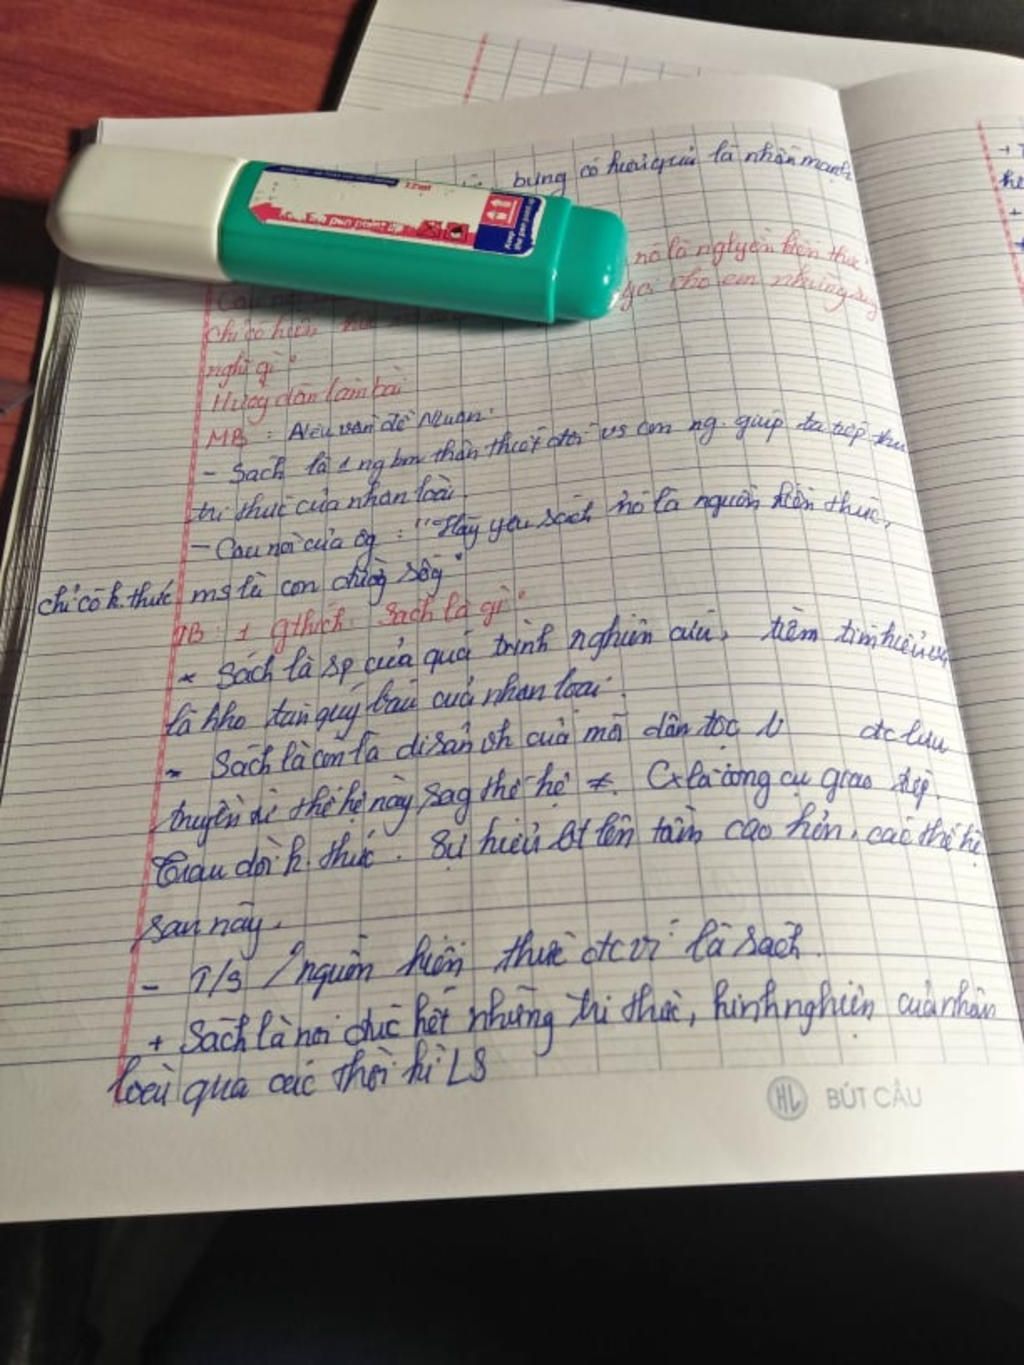 bung có hiệu quả là nhấn mạnh
12ml
pen point
Keep
nó là nguyền kiến thức
cho em những suy
chỉ có kiến thức
nghĩ gì"
Hướng dẫn làm bài
MB: Nêu vấn đề Nluận.
- Sách là 1 ng bạn thân thiết đối vs con ng. giúp ta tiếp thu
tri thức của nhân loài.
- Câu nói của ôg: "Hãy yêu sách nó là nguồn kiến thức,
chỉ có k.thức ms là con đường sốg"
TB: 1 gthích: Sách là gì"
* Sách là sp của quá trình nghiên cứu, tiềm tìm hiểu và
là kho tàn quý báu của nhân loài.
* Sách là còn là di sản của mỗi dân tộc đc lưu
truyền từ thế hệ này sag thế hệ ≠. Cx là công cụ giao tiếp.
Trau dồi k.thức. Sự hiểu bt lên tầm cao hơn. các thế hệ
sau này.
- T/s /nguồn kiến thức đc ví là sách.
+ Sách là nơi đúc kết những tri thức, kinh nghiện của nhân
loài qua các thời kì LS
HL BÚT CÂU